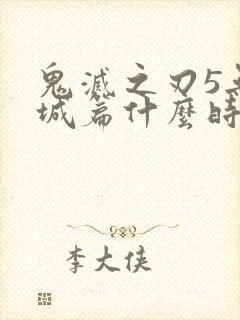 鬼滅之刃5
城篇什麼時
李大俠